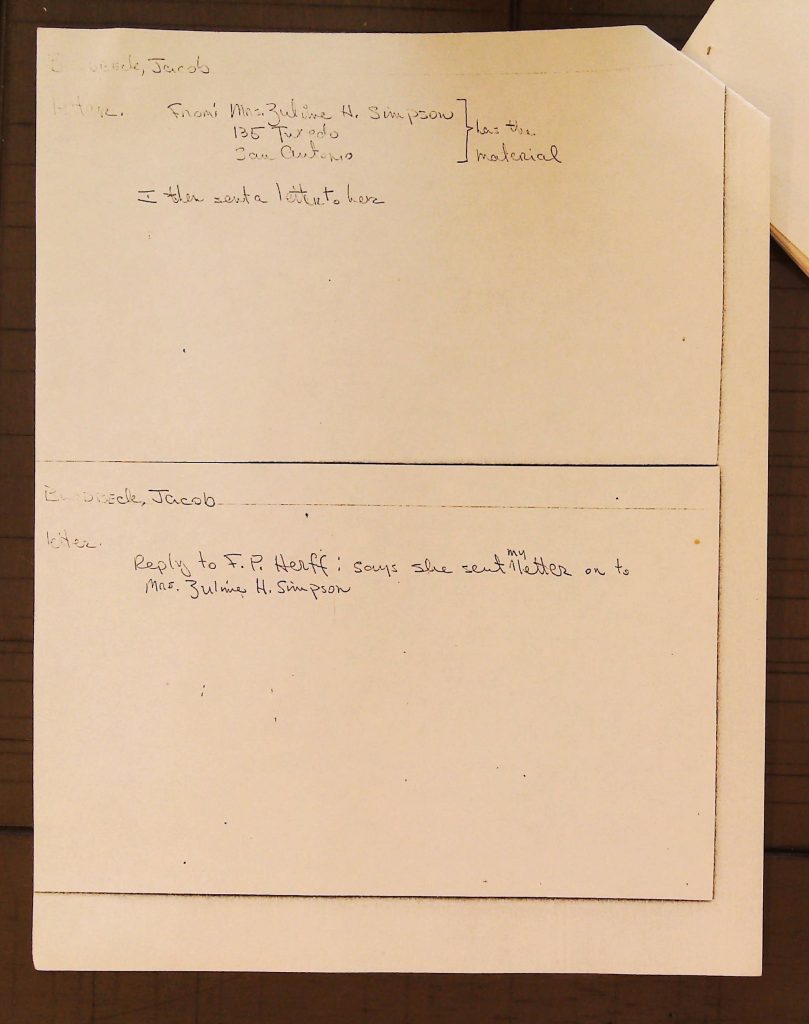 Brodbeck, Jacob
letter. From: Mrs. Zuline H. Simpson
135 Tuxedo
San Antonio
has the
material
I then sent a letter to her
Brodbeck, Jacob
letter.
Reply to F. P. Herff: says she sent my letter on to
Mrs. Zuline H. Simpson